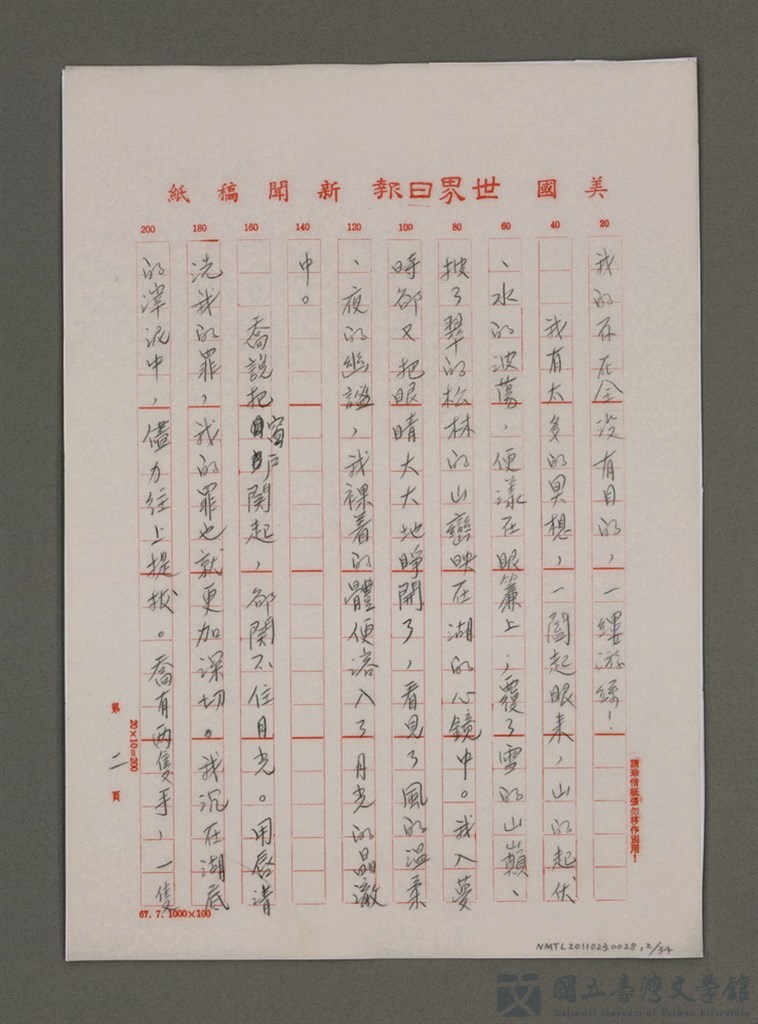 美國世界日報新聞稿紙
20 40 60 80 100 120 140 160 180 200
我的存在全沒有目的，一縷游絲！
我有太多的冥想，一闔起眼來，山的起伏
、水的波蕩，便漾在眼簾上；覆了雪的山巔、
披了翠的松林的山巒映在湖的心鏡中。我入夢
時卻又把眼睛大大地睜開了，看見了風的溫柔
、夜的幽謐，我裸着的體便溶入了月光的晶澈
中。
喬說把窗戶關起，卻關不住月光。用唇清
洗我的罪，我的罪也就更加深切。我沉在湖底
的滓泥中，儘力往上提拔。喬有兩隻手，一隻
請珍惜紙張勿移作別用！
20×10=200
第二頁
67.7.1000×100
NMTL20110230028,2/34
國立臺灣文學館
National Museum of Taiwan Literature